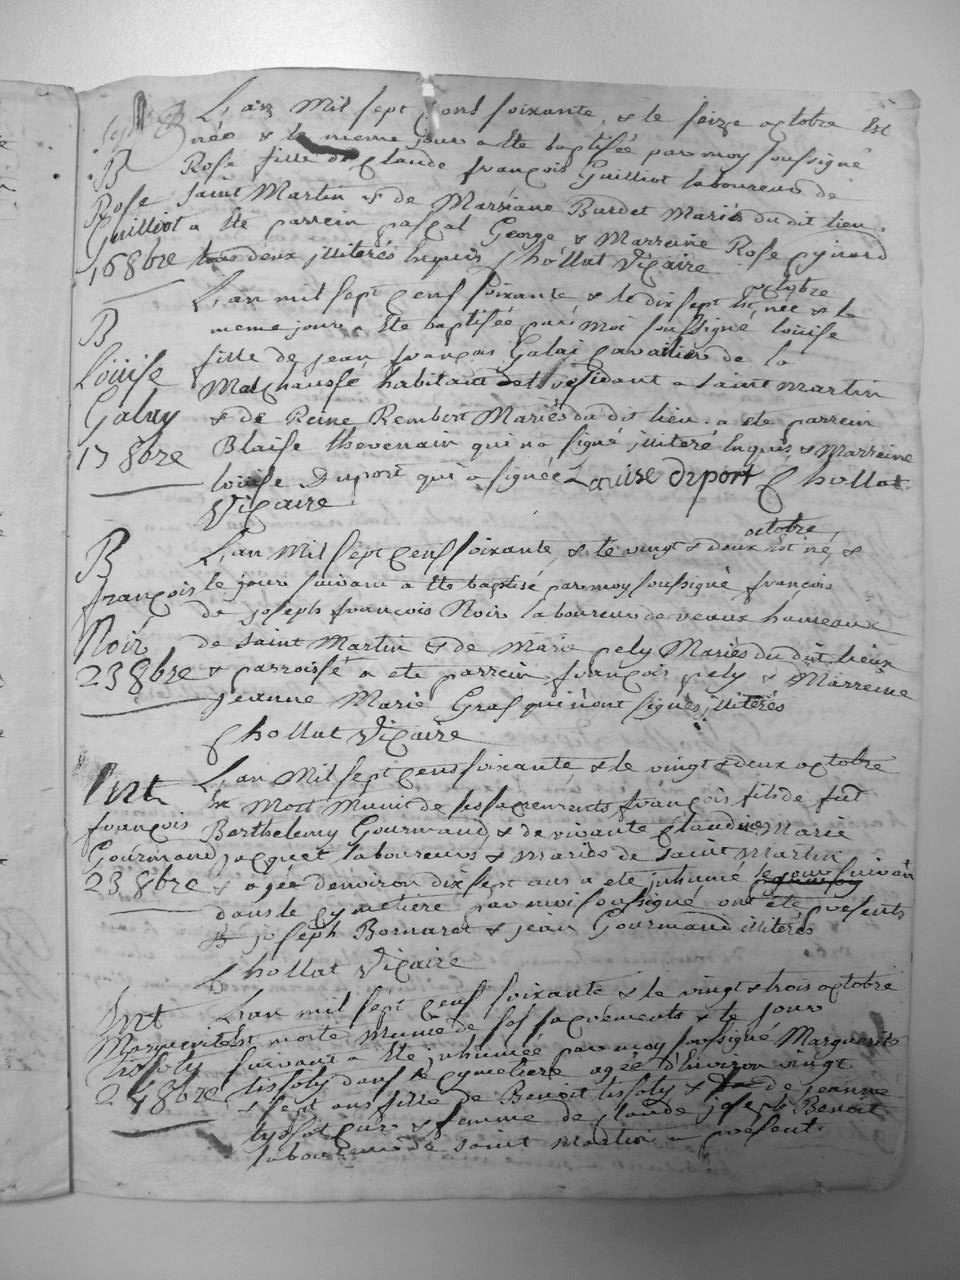 L'an Mil sept Cens soixante, & le seize octobre Est
B
née & le meme jour a Ete baptisée par moy soussigné
Rose fille de Claude françois Guilliot laboureur de
Rose
saint Martin & de Marsiane Burdet Mariés du dit lieu.
Guilliot
a Ete parrein pascal George & Marreine Rose
16 8bre
tous deux illiterés Enquis Chollat Vicaire
L'an mil sept Cens soixante & le dix sept octobre Est née & le
B
meme jour a Ete baptisée par Moi soussigné louise
Louise
fille de jean françois Galai Cavailier de la
Galay
Malchaussé habitant et residant a saint martin
& de Reine Rembert Mariés du dit lieu. a ete parrein
17 8bre
Blaise thevenain qui na signé illiteré Enquis & Marreine
louise Duport qui a signée Louise duport Chollat
Vicaire
B
L'an Mil sept Cens soixante, & le vingt & deux octobre Est né, &
françois
le jour suivant a Ete baptisé par moy soussigné françois
de joseph françois Noir laboureur de veaux hameaux
Noir
de saint Martin & de Marie pely Mariés du dit lieux
23 8bre
& parroisse a ete parrein françois pely & Marreine
jeanne Marie Gras qui n'ont signés illiterés
Chollat Vicaire
L'an Mil sept Cens soixante & le vingt & deux octobre
Ent
Est Mort Munis de ses sacrements françois fils de fut
françois
Berthelemy Gourmand & de vivante Claudine Marie
Gourmand
jacquet laboureurs & mariés de saint Martin
23 8bre
& agée denviron dix sept ans a ete inhumé le jour suivan
dans le Cymetiere par moi soussigné ont été présents
joseph Bornaret & jean Gourmand illiterés
Chollat Vicaire
L'an mil sept Cens soixante & le vingt & trois octobre
Ent
Est morte Munie de ses sacréments & le jour
Marguerite
suivant a Ete inhumée par moy soussigné Marguerite
tissoly
tissoly dans le Cymetiere agée d'Environ vingt
24 8bre
& sept ans fille de Benoit tissoly & de jeanne
& femme de Claude joseph Benoit
laboureur de saint Martin présent